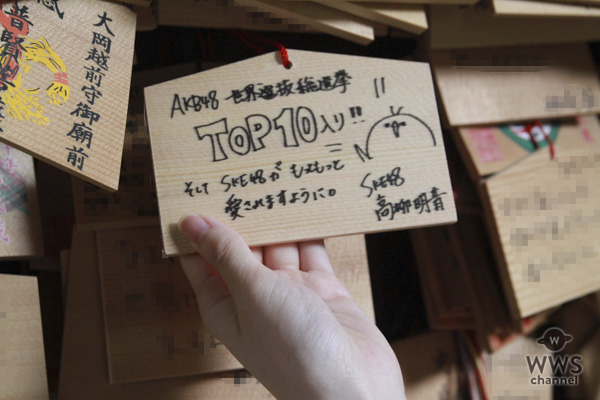 大岡越前守御廟前
普賢
AKB48 世界選抜総選挙
TOP10入り!!
そして SKE48が もっともっと
愛されますように。
SKE48
高柳明音
W
WWS
channel